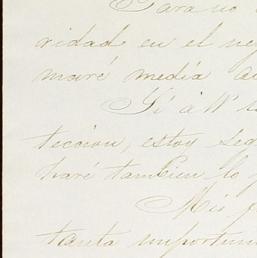 Para no
ridad en el
maré media
Si á V
teccion, estoy seg
haré tambien lo
Mis
tanta importun